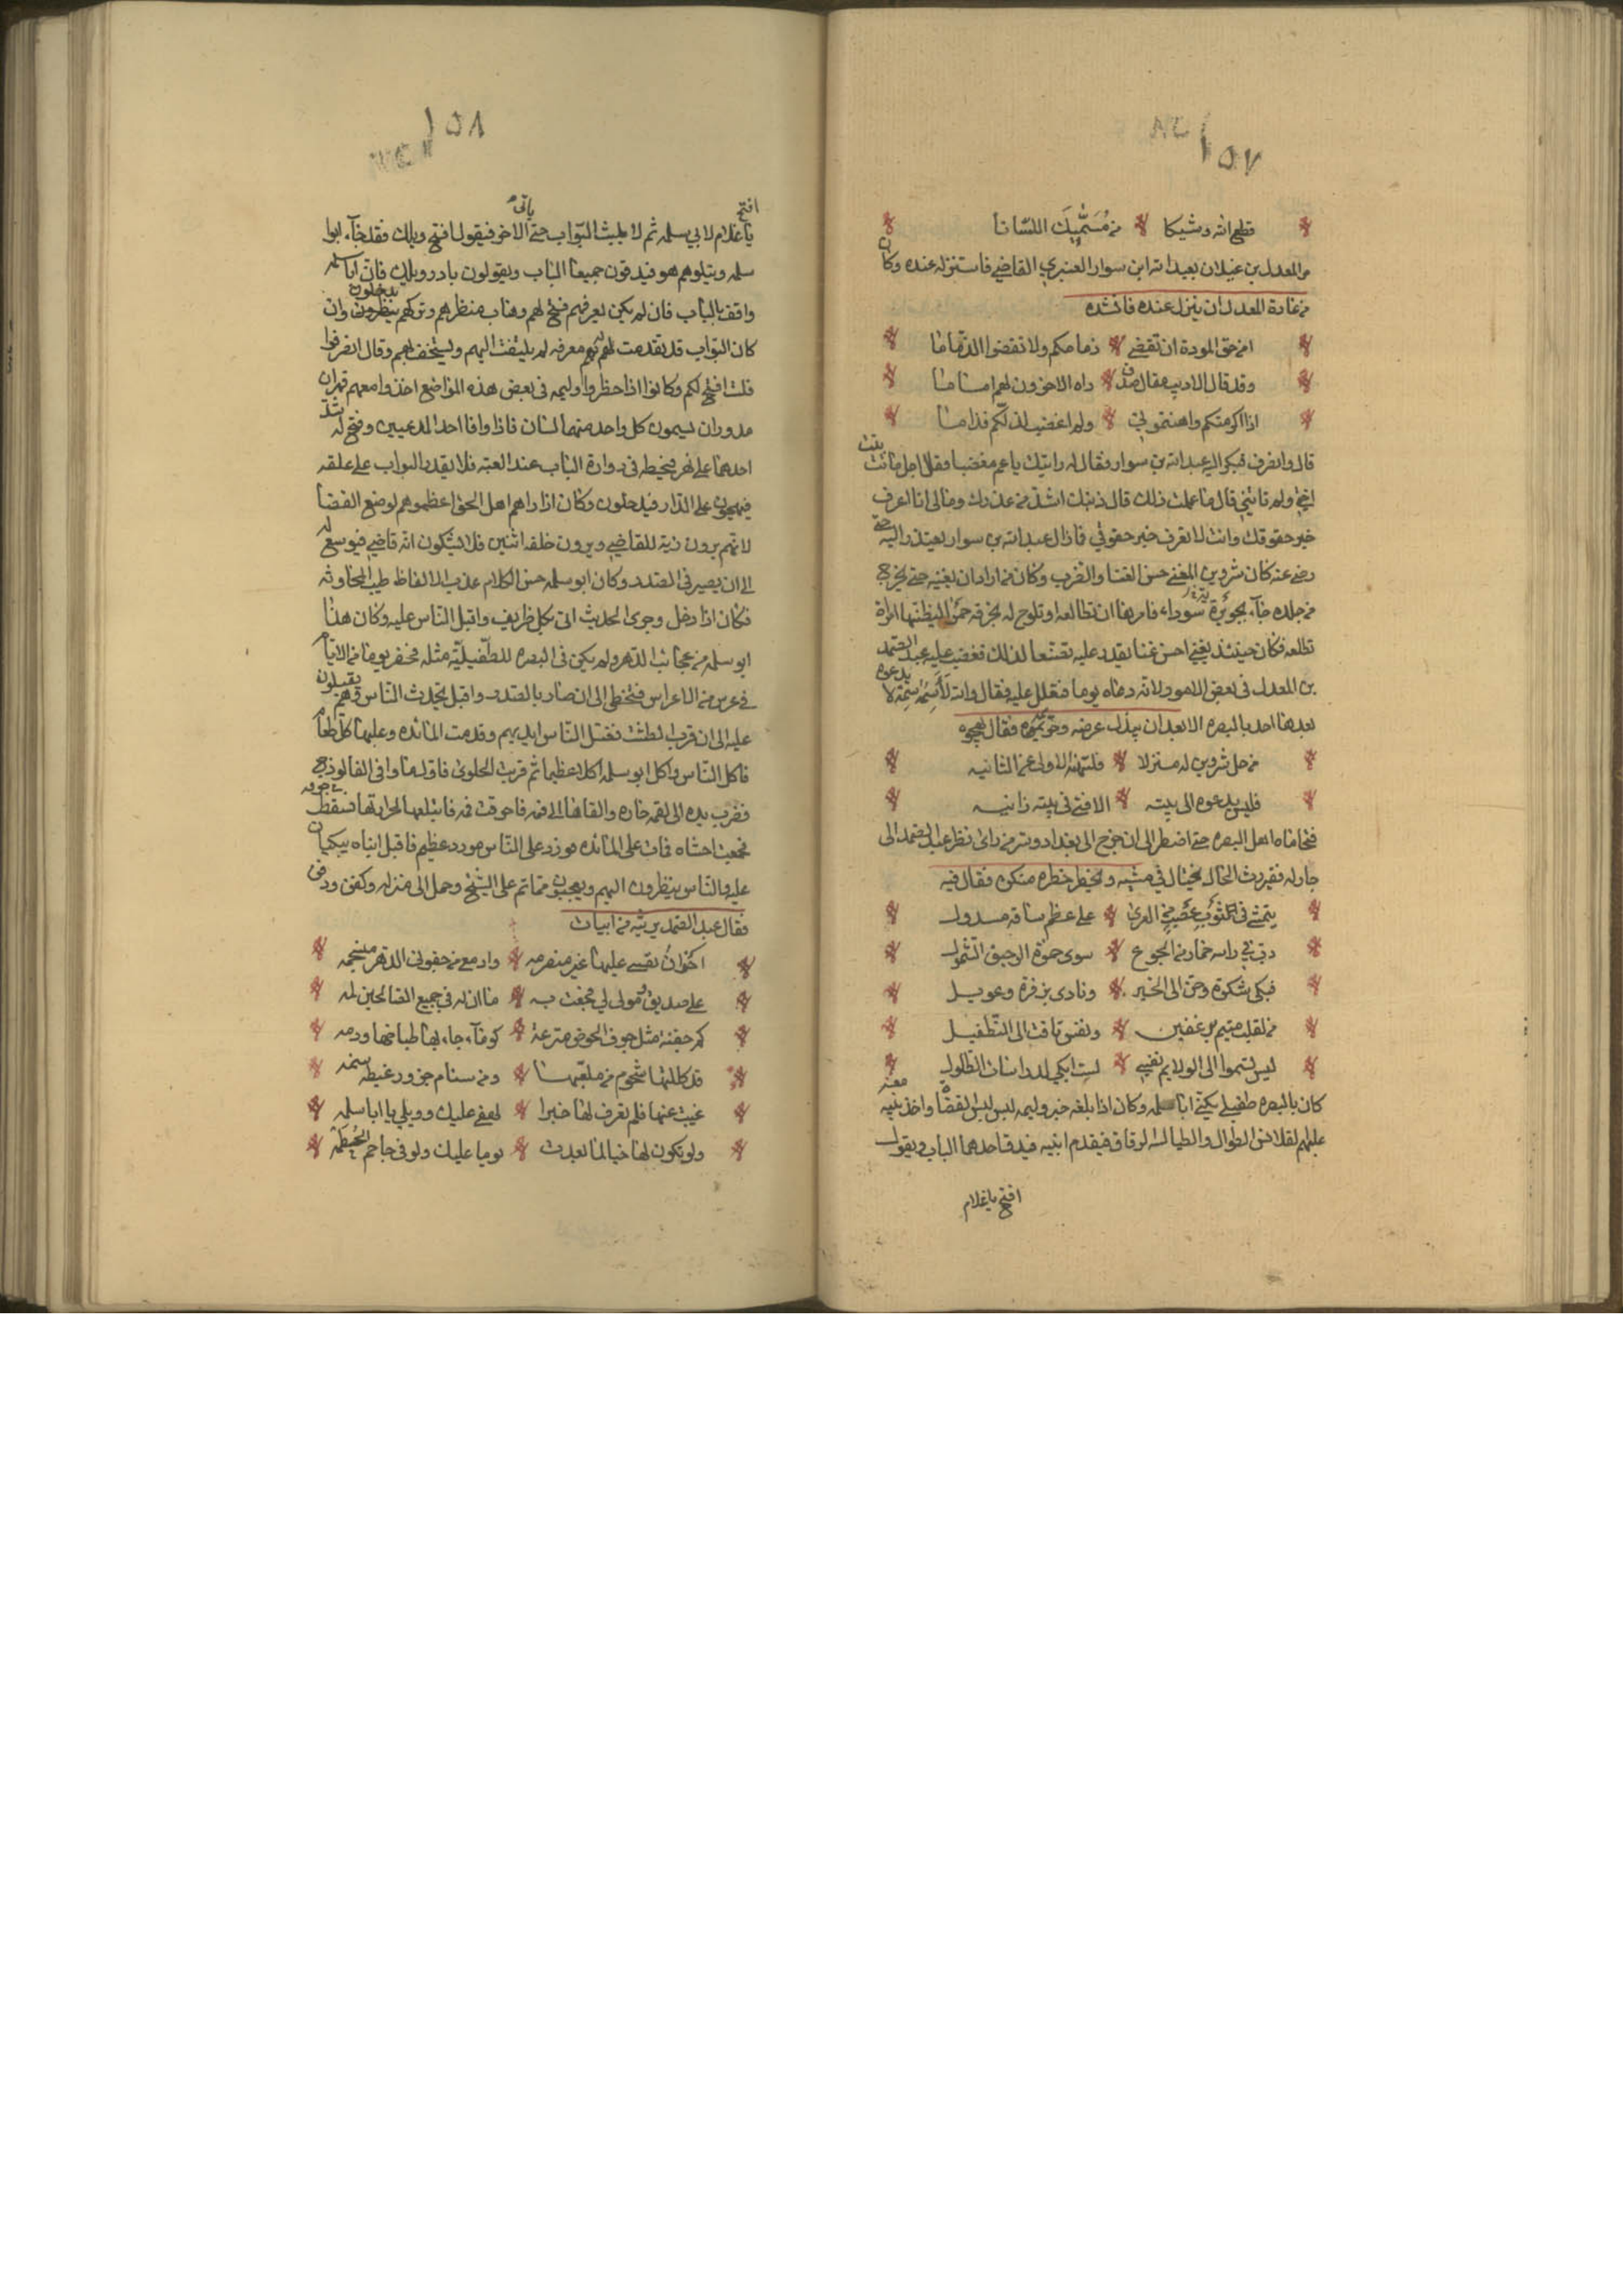 ١٥٧
قطع الله وشيكا من مُسَمِّيكَ اللسانا
مر المعدل بن غيلان بعبد الله ابن سوار العنبري القاضي فاستنزله عنده وكان
من عادة المعدل ان ينزل عنده فانشده
امن حق المودة ان تقضى ذمامكم ولا تقضوا الذماما
وقد قال الاديب مقال صدق راه الاخرون لهم اماما
اذا اكرمتكم واهنتموني ولم اغضب لذلكم فذاما
قال وانصرف فبكر اليه عبد الله بن سوار فقال له رايتك يا عم مغضبا فقال اجل ماتت بنت
اختي ولم تاتني قال ما علمت ذلك قال ذنبك اشد من عذرك ومالي انا اعرف
خبر حقوقك وانت لا تعرف خبر حقوقي فما زال عبد الله بن سوار يعتذر اليه حتى
رضي عنه كان شروين المغني حسن الغنا والضرب وكان من اراد ان يغنيه حتى يخرج
من جلده جاء بجويرة سوداء فامرها ان تطالعه وتلوح له بخرقه حمرا ليظنها امراة
تطالعه فكان حينئذ يغني احسن غنا يقدر عليه تصنعا لذلك فغضب عليه عبد الصمد
بن المعدل في بعض الامور لانه دعاه يوما فتعلل عليه فقال والله لَأَسِمَنَّهُ سِمَة لا يدعوه
بعدها احد بالبصره الا بعد ان يبذل عرضه وحريمه فقال يهجوه
من حل شروين له منزلا فلتنهه الاولى عن الثانيه
فليس يدعوه الى بيته الا فتى في بيته زانيه
فتحاماه اهل البصره حتى اضطر الى ان خرج الى بغداد وسر من راى نظر عبد الصمد الى
جار له فقير رث الحال يختال في مشيه ويخطر خطره منكره فقال فيه
يتمشى في ثوب عصب من العري على عظم ساقه مسدول
دب في راسه خمار من الجوع سرى خمرة الرحيق الشمول
فبكى شكوة وحن الى الخبز ونادى بزفرة وعويل
من لقلب متيم برغيفين ونفس تاقت الى التطفيل
ليس تسموا الى الولايم نفسي لست ابكي لدارسات الطلول
كان بالبصره طفيلي يكنى ابا سلمه وكان اذا بلغه خبر وليمه لبس لبس القضاه واخذ بنيه معه
عليهم القلانس الطوال والطيالسه الرقاق فيقدم ابنيه فيدق احدهما الباب ويقول
افتح يا غلام
١٥٨
افتح
يا غلام لابي سلمه ثم لا يلبث البواب حتى ياتي الاخر فيقول افتح ويلك فقد جاء ابوا
سلمه ويتلوهم هو فيدقون جميعا الباب ويقولون بادر ويلك فان ابا سلمه
واقف بالباب فان لم يكن يعرفهم فتح لهم وهاب منظرهم وتركهم يدخلون وان
كان البواب قد تقدمت لهم به معرفه لم يلتفت اليهم ويستخف بهم وقال انصرفوا
فلست افتح لكم وكانوا اذا حظروا وليمه في بعض هذه المواضع اخذوا معهم فهران
مدوران يسمون كل واحد منهما لسان فاذا وافا احد المدعيين وفتح له شد
احدهما على نهر فيخيطه في دوارة الباب عند العتبه فلا يقدر البواب على غلقه
فيهجون على الدار فيدخلون وكان اذا راهم اهل الحق اعظموهم لوضع القضا
لانهم يرون زية للقاضي ويرون خلفه اثنين فلا يشكون انه قاضي فيوسع له
الى ان يصير في الصدر وكان ابو سلمه حسن الكلام عذب الالفاظ طيب المحاوثه
فكان اذا دخل وجرى الحديث اتى بكل ظريف واقبل الناس عليه وكان هذا
ابو سلمه من عجائب الدهر ولم يكن في البصره للطفيلية مثله فحضر يوما من الايام
في عرس من الاعراس فتخطى الى ان صار بالصدر واقبل يحدث الناس وهم يقبلون
عليه الى ان قرب الطشت فغسل الناس ايديهم وقدمت المائده وعليها كل طعام
فاكل الناس واكل ابو سلمه اكلا عظيما ثم قربت الحلوى فاول ما وافى الفالوذج
فضرب يده الى لقمه حاره والقاها الى فمه فاحرقت فمه فابتلعها لحرارتها فسقطت في جوفه
فجمعت احشاه فمات على المائده فورد على الناس مورد عظيم فاقبل ابناه يبكيان
عليه والناس ينظرون اليهم ويعجبون مما تم على الشيخ وحمل الى منزله وكفن ودفن
فقال عبد الصمد يرثيه من ابيات
احزان نفسي عليها غير منصرمه وادمع من جفوني الدهر منسجمه
على صديق ومولى لي فجعت به ما ان له في جميع الصالحين لمه
كم جفنة مثل جوف الحوض مترعة كوماء جاء بها طباخها ردمه
قد كللتها شحوم من مليقها ومن سنام جزور غبطه سنمه
غيبت عنها فلم تعرف لها خبرا لهفي عليك وويلي يا ابا سلمه
ولو تكون لها حيا لما بعدت يوما عليك ولو في جاحم الحُطَمَة